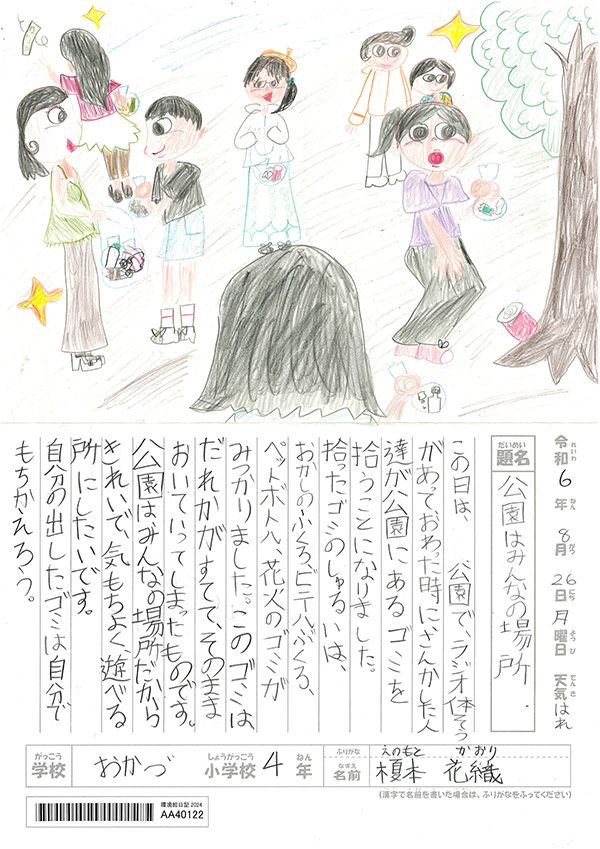 令和6年8月26日月曜日 天気はれ
れいわ ねん がつ にち ようび てんき
だいめい
題名 公園はみんなの場所.
この日は、公園で、ラジオ体そう
があって、おわった時にさんかした人
達が公園にあるゴミを
拾うことになりました。
拾ったゴミのしゅるいは、
おかしのふくろ、ビニールぶくろ、
ペットボトル、花火のゴミが
みつかりました。このゴミは
だれかがすてて、そのまま
おいていってしまったものです。
公園はみんなの場所だから
きれいで、気もちよく遊べる
所にしたいです。
自分の出したゴミは自分で
もちかえろう。
がっこう しょうがっこう ねん
学校 おかづ 小学校 4年
ふりがな えのもと かおり
なまえ
名前 榎本 花織
(漢字で名前を書いた場合は、ふりがなをふってください)
環境絵日記2024
AA40122